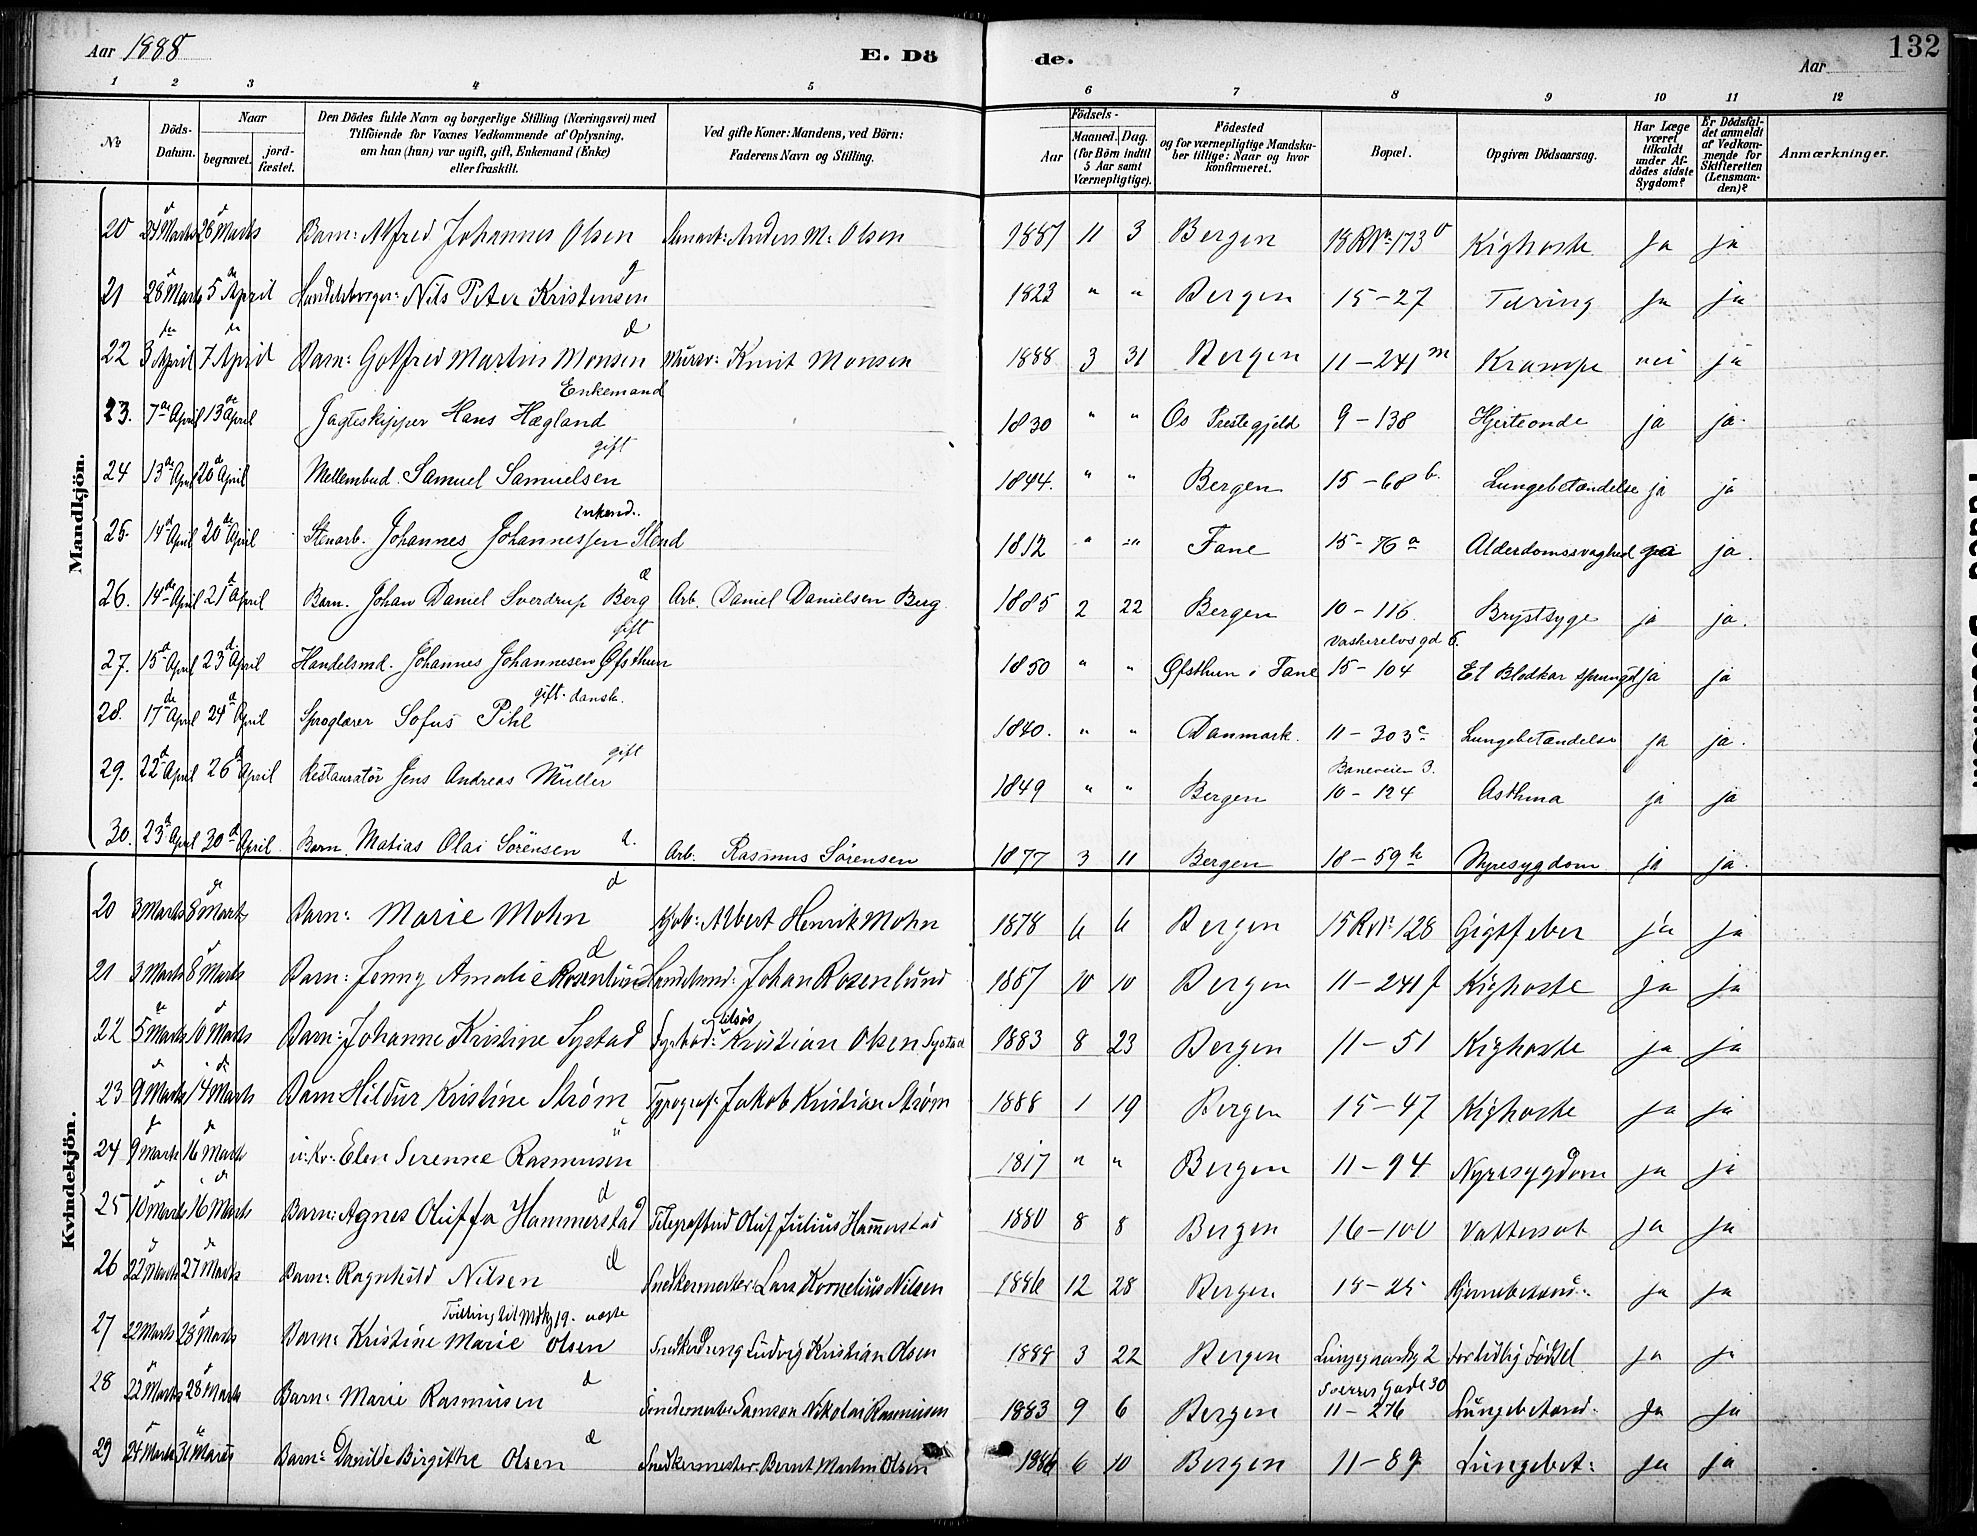 Aar 1888 E. Döde. Aar 132
1 2 3 4 5 6 7 8 9 10 11 12
No.
Döds-Datum.
Naar
begravet. jordfæstet.
Den Dödes fulde Navn og borgerlige Stilling (Næringsvei) med Tilföiende for Voxnes Vedkommende af Oplysning, om han (hun) var ugift, gift, Enkemand (Enke) eller fraskilt.
Ved gifte Koner: Mandens, ved Börn: Faderens Navn og Stilling.
Födsels-
Aar Maaned. Dag.
(for Börn indtil 5 Aar samt Værnepligtige).
Födested og for værnepligtige Mandskaber tillige: Naar og hvor konfirmeret.
Bopæl.
Opgiven Dödsaarsag.
Har Læge været tilkaldt under Afdödes sidste Sygdom?
Er Dödsfaldet anmeldt af Vedkommende for Skifteretten (Lensmanden)?
Anmærkninger.
Mandkjön.
20 24 Marts 28 Marts Barn: Alfred Johannes Olsen Stenarb: Anders M. Olsen 1887 11 3 Bergen 18 RNo 173 Kighoste Ja ja
21 28 Marts 5 April Handelsborger: Nils Peter Kristensen g 1823 " " Bergen 15-27 Tæring Ja ja
22 3 April 7 April Barn: Gotfred Martin Monsen d Murer: Knut Monsen 1888 3 31 Bergen 11-241 m Krampe nei ja
23. 7de April 13de April Jagteskipper Hans Hægland Enkemand 1830 " " Os Prestegjeld 9-138 Hjerteonde ja ja.
24 13de April 20d April Mellembud. Samuel Samuelsen gift 1844. " " Bergen 15-68 b. Lungebetændelse ja ja
25. 14d April 20de April Stenarb. Johannes Johannessen Stend Enkend. 1812 " " Fane 15-76 a Alderdomssvaghed ja.
26. 14de April 21d April Barn. Johan Daniel Sverdrup Berg d Arb. Daniel Danielsen Berg. 1885 2 22 Bergen 10-116. Brystsyge ja ja.
27. 15d April 23d April Handelsmd. Johannes Johannesen Øfsthun gift 1850 " " Øfsthun i Fane Vaskerelvsgd 6. 15-104 Et Blodkar sprungd ja ja
28. 17de April 24d April Sproglærer Sofus Pihl gift. dansk. 1840. " " Danmark. 11-303 c Lungebetændelse ja ja.
29. 22d April 26d April Restauratør Jens Andreas Müller gift 1849 " " Bergen Baneveien 3. 10-124 Asthma ja ja
30. 23d April 30d April. Barn. Matias Olai Sörensen d. Arb. Rasmus Sörensen 1877 3 11 Bergen 18-59 h Nyresygdom ja ja.
Kvindekjön.
20 3 Marts 8 Marts Barn: Marie Mohn d Kjøb: Albert Henrik Mohn 1878 6 6 Bergen 15 RNo 128 Gigtfeber ja ja
21 3 Marts 8 Marts Barn: Jenny Amalie Rosenlund d Handelsmd: Johan Rosenlund 1887 10 10 Bergen 11-241 f Kighoste ja ja
22 5 Marts 10 Marts Barn: Johanne Kristine Systad Kristian Olsen Systad 1883 8 23 Bergen 11-51 Kighoste ja ja
23 9 Marts 14 Marts Barn Hildur Kristine Strøm Typograf: Jakob Kristian Strøm 1888 1 19 Bergen 15-47 Kighoste ja ja
24 9 Marts 16 Marts Elen Serenne Rasmusen u 1817 " " Bergen 11-94 Nyresygdom ja ja
25 10 Marts 16 Marts Barn: Agnes Oluffa Hammerstad d Telegrafbud Oluf Julius Hammerstad 1880 8 8 Bergen 16-100 Vattersot ja ja
26 22 Marts 27 Marts Barn: Ragnhild Nilsen d Snedkermester: Lars Kornelius Nilsen 1886 12 28 Bergen 18-25 Hjernebetænd: ja ja
27 22 Marts 28 Marts Barn: Kristine Marie Olsen Tvilling til Mdkj 19. Snedkerdreng Ludvig Kristian Olsen 1888 3 22 Bergen Lungegaardsg 2 For tidlig Födsel ja ja
28 22 Marts 28 Marts Barn: Marie Rasmusen d Samson Nikolai Rasmusen 1883 9 6 Bergen Sverres Gade 30 11-276 Lungebetænd: Ja ja
29 24 Marts 31 Marts Barn: Danilde Birgitte Olsen d Snedkermester: Bernt Martin Olsen 1886 6 10 Bergen 11-89 Lungebet: ja ja